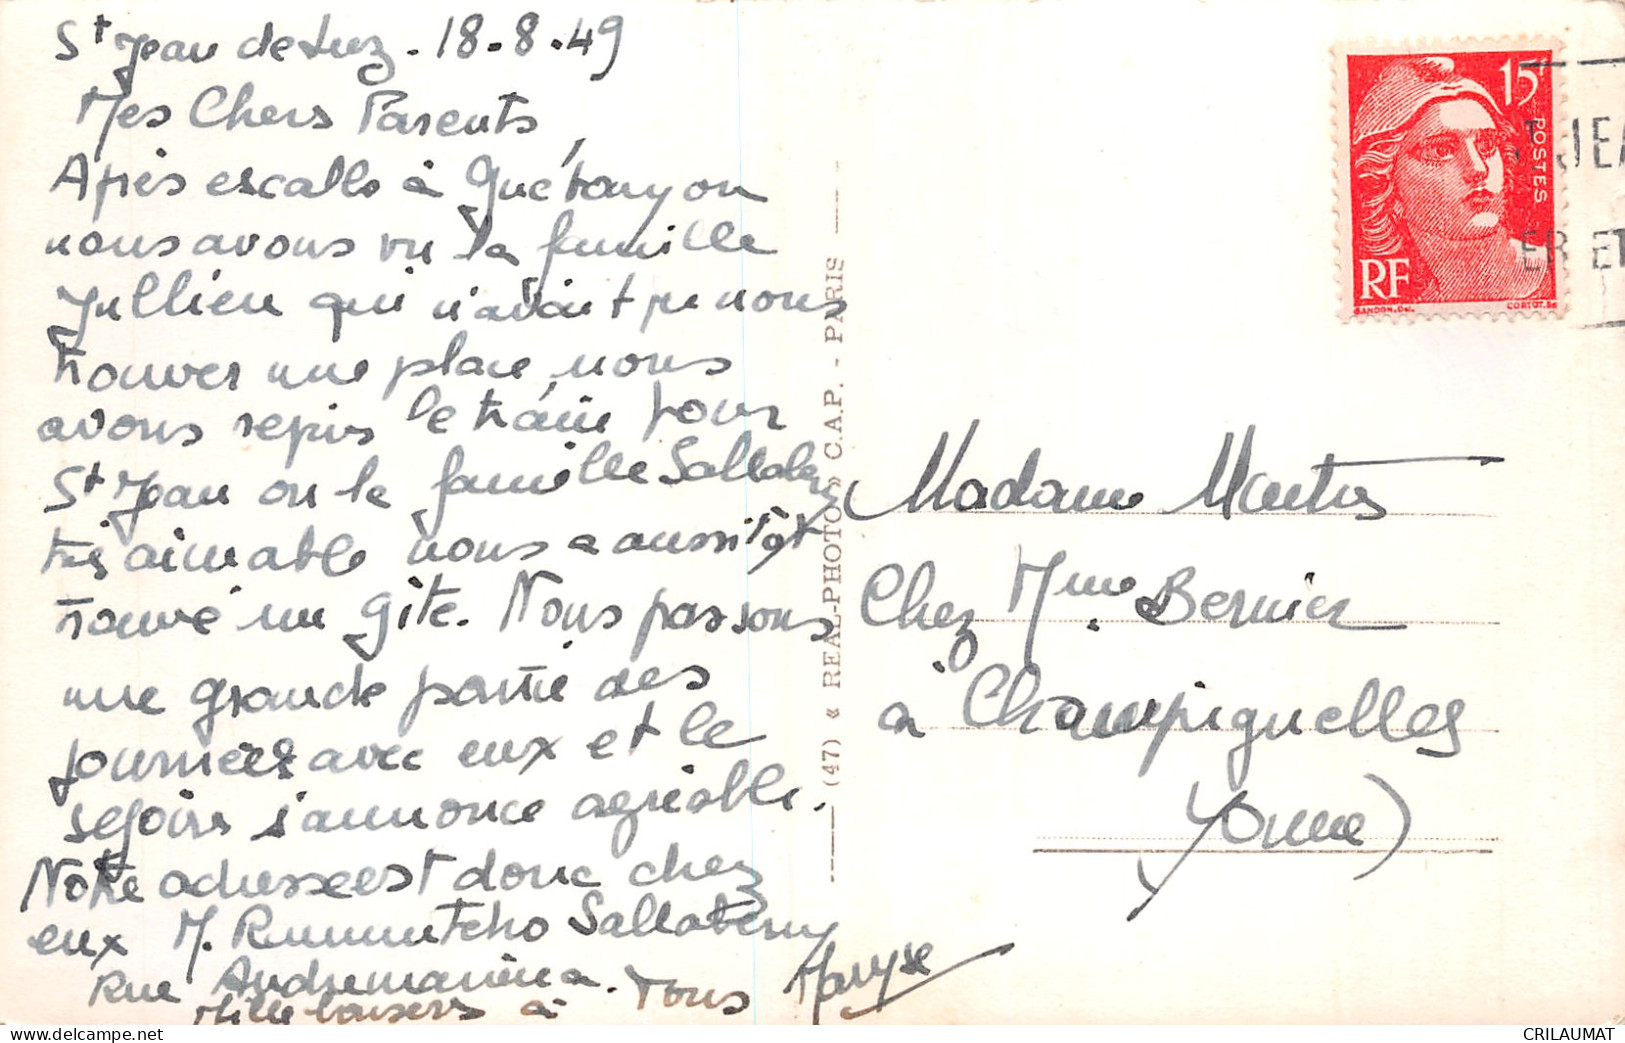 St Jean de Luz - 18-8-49
Mes Chers Parents,
Après escalle à Guétary on
nous avons vu la famille
Jullien qui n'avait pu nous
trouver une place, nous
avons repris le train pour
St Jean ou la famille Sallaberry
très aimable nous a aussitôt
trouvé un gîte. Nous passons
une grande partie des
journées avec eux et le
séjour s'annonce agréable.
Notre adresse est donc chez
eux M. Sallaberry
Rue
Mille baisers à Tous Maryse
(47) « REAL-PHOTO » C.A.P. - PARIS
15f
POSTES
RF
GANDON.Del.
CORTOT.Sc
JEA
ER ET
Madame Martin
Chez Mme Bernier
à Champignelles
Yonne)
CRILAUMAT